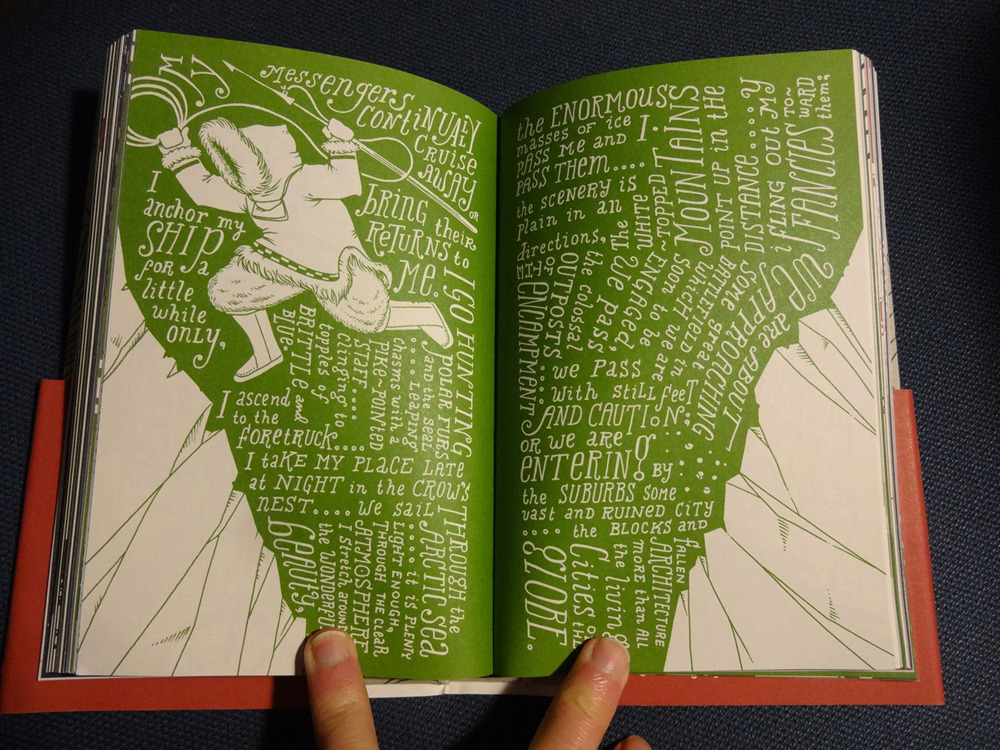 MY
Messengers
CONTINUALLY
CRUISE
AWAY
OR
bRING their
RETURNS to
ME.
I
anchor my
SHIP
for a
little
while
only,
I GO HUNTING
POLAR FURS
and the seal
.... Leaping
chasms with a
PIKE-POINTED
STAFF....
Clinging to
topples of
BRITTLE and
BLUE.
I ascend
to the
foretruck....
I take MY PLACE LATE
at NIGHT in the CROW'S
NEST.... we sail
THROUGH the
ARCTIC sea
.... it is PLENTY
LIGHT ENOUGH,
THROUGH THE CLEAR
ATMOSPHERE
I stretch around
the WONDERFUL
beauty,
the ENORMOUS
masses of ice
PASS ME and I
PASS THEM....
the scenery is
plain in all
directions,
The white
-topped
MOUNTAINS
POINT UP in the
DISTANCE....
i fling out my
FANCIES TO-
WARD
them;
We are about
APPROACHING
some great
BATTLEFIELD in
which we are
soon to be
ENGAGED,
We pass
the colossal
OUTPOSTS
of the
ENCAMPMENT....
we pass
with still feet
AND CAUTION;
OR we are
ENTERING by
the SUBURBS some
vast and RUINED CITY
.... the BLOCKS and
fallen
ARCHITECTURE
more than all
the living
Cities of the
globe.